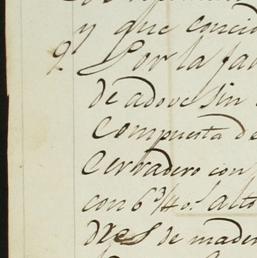 y que
9. Por la
de adove sin
Compuesta de
Cerradero con
con 6 3/4 o.s alto
dres de mader